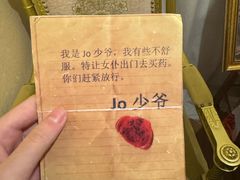 我是 Jo 少爷，我有些不舒
服。特让女仆出门去买药。
你们赶紧放行。
Jo 少爷